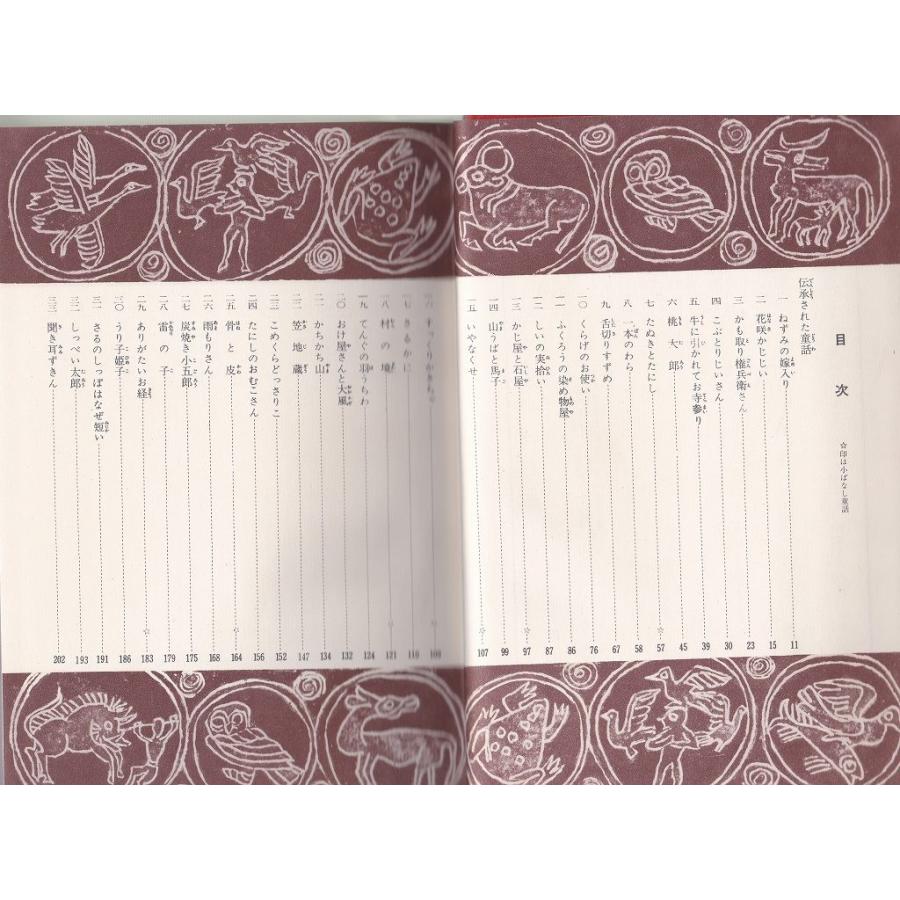 目次
☆印は小ばなし童話
伝承された童話
一 ねずみの嫁入り 11
二 花咲かじじい 15
三 かも取り権兵衛さん 23
四 こぶとりじいさん 30
五 牛に引かれてお寺参り 39
六 桃太郎 45
七 たぬきとたにし ☆ 57
八 一本のわら 58
九 舌切りすずめ 67
一〇 くらげのお使い 76
一一 ふくろうの染め物屋 86
一二 しいの実拾い 87
一三 かじ屋と石屋 ☆ 97
一四 山うばと馬子 99
一五 いやなくせ ☆ 107
一六 ☆ 108
一七 さるかに 110
一八 村の境 ☆ 121
一九 てんぐの羽うちわ 124
二〇 おけ屋さんと大風 132
二一 かちかち山 134
二二 笠地蔵 147
二三 こめくらどっさりこ 152
二四 たにしのおむこさん 156
二五 骨と皮 ☆ 164
二六 雨もりさん 168
二七 炭焼き小五郎 175
二八 雷の子 179
二九 ありがたいお経 ☆ 183
三〇 うり子姫子 186
三一 さるのしっぽはなぜ短い 191
三二 しっぺい太郎 193
三三 聞き耳ずきん 202